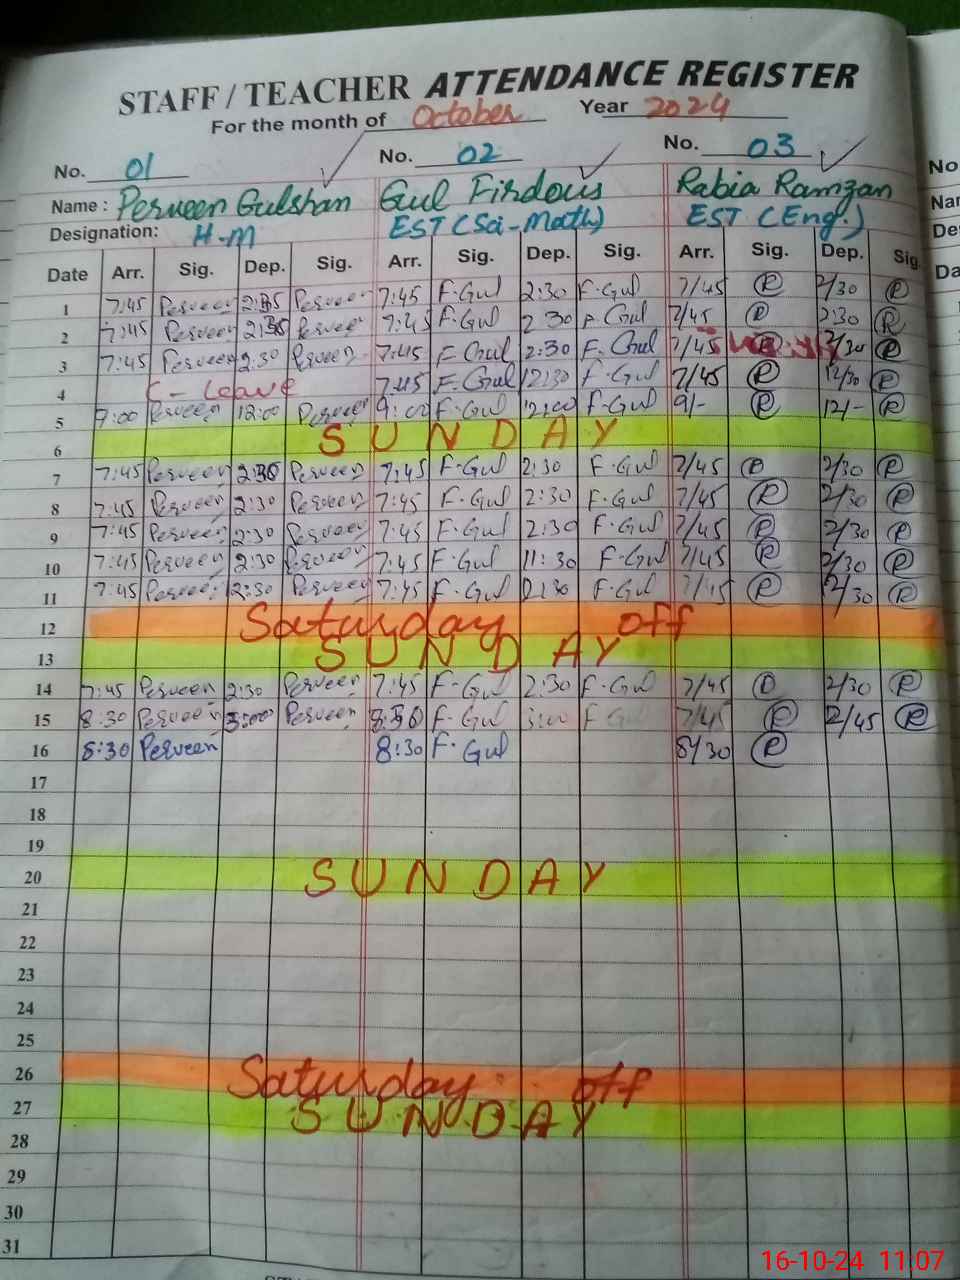 STAFF / TEACHER ATTENDANCE REGISTER
For the month of October Year 2024
No. 01 No. 02 No. 03
Name : Perveen Gulshan Gul Firdous Rabia Ramzan
Designation: H-M EST (Sci-Math) EST (Eng.)
Date Arr. Sig. Dep. Sig. Arr. Sig. Dep. Sig. Arr. Sig. Dep. Sig.
1 7:45 Perveen Perveen 7:45 F.Gul 2:30 F.Gul 7/45 R 2/30 R
2 7:45 Perveen Perveen 7:45 F.Gul 2:30 F.Gul 7/45 R 2:30 R
3 7:45 Perveen 2:30 Perveen 7:45 F.Gul 2:30 F.Gul 7/45 R 2/30 R
4 C-Leave 7:45 F.Gul 12:30 F.Gul 7/45 R 12/30 R
5 Perveen 12:00 Perveen 9:00 F.Gul 12:00 F.Gul 9/- R 12/- R
6 SUNDAY
7 7:45 Perveen 2:30 Perveen 7:45 F.Gul 2:30 F.Gul 7/45 R 2/30 R
8 7:45 Perveen 2:30 Perveen 7:45 F.Gul 2:30 F.Gul 7/45 R 2/30 R
9 7:45 Perveen 2:30 Perveen 7:45 F.Gul 2:30 F.Gul 7/45 R 2/30 R
10 7:45 Perveen 2:30 Perveen 7:45 F.Gul 11:30 F.Gul 7/45 R 2/30 R
11 7:45 Perveen 12:30 Perveen 7:45 F.Gul F.Gul 7/45 R R
12 Saturday off
13 SUNDAY
14 7:45 Perveen 2:30 Perveen 7:45 F.Gul 2:30 F.Gul 7/45 R 2/30 R
15 8:30 Perveen 3:00 Perveen 8:30 F.Gul 3:00 F.Gul 7/45 R 2/45 R
16 8:30 Perveen 8:30 F.Gul 8/30 R
17
18
19
20 SUNDAY
21
22
23
24
25
26 Saturday off
27 SUNDAY
28
29
30
31
16-10-24 11:07